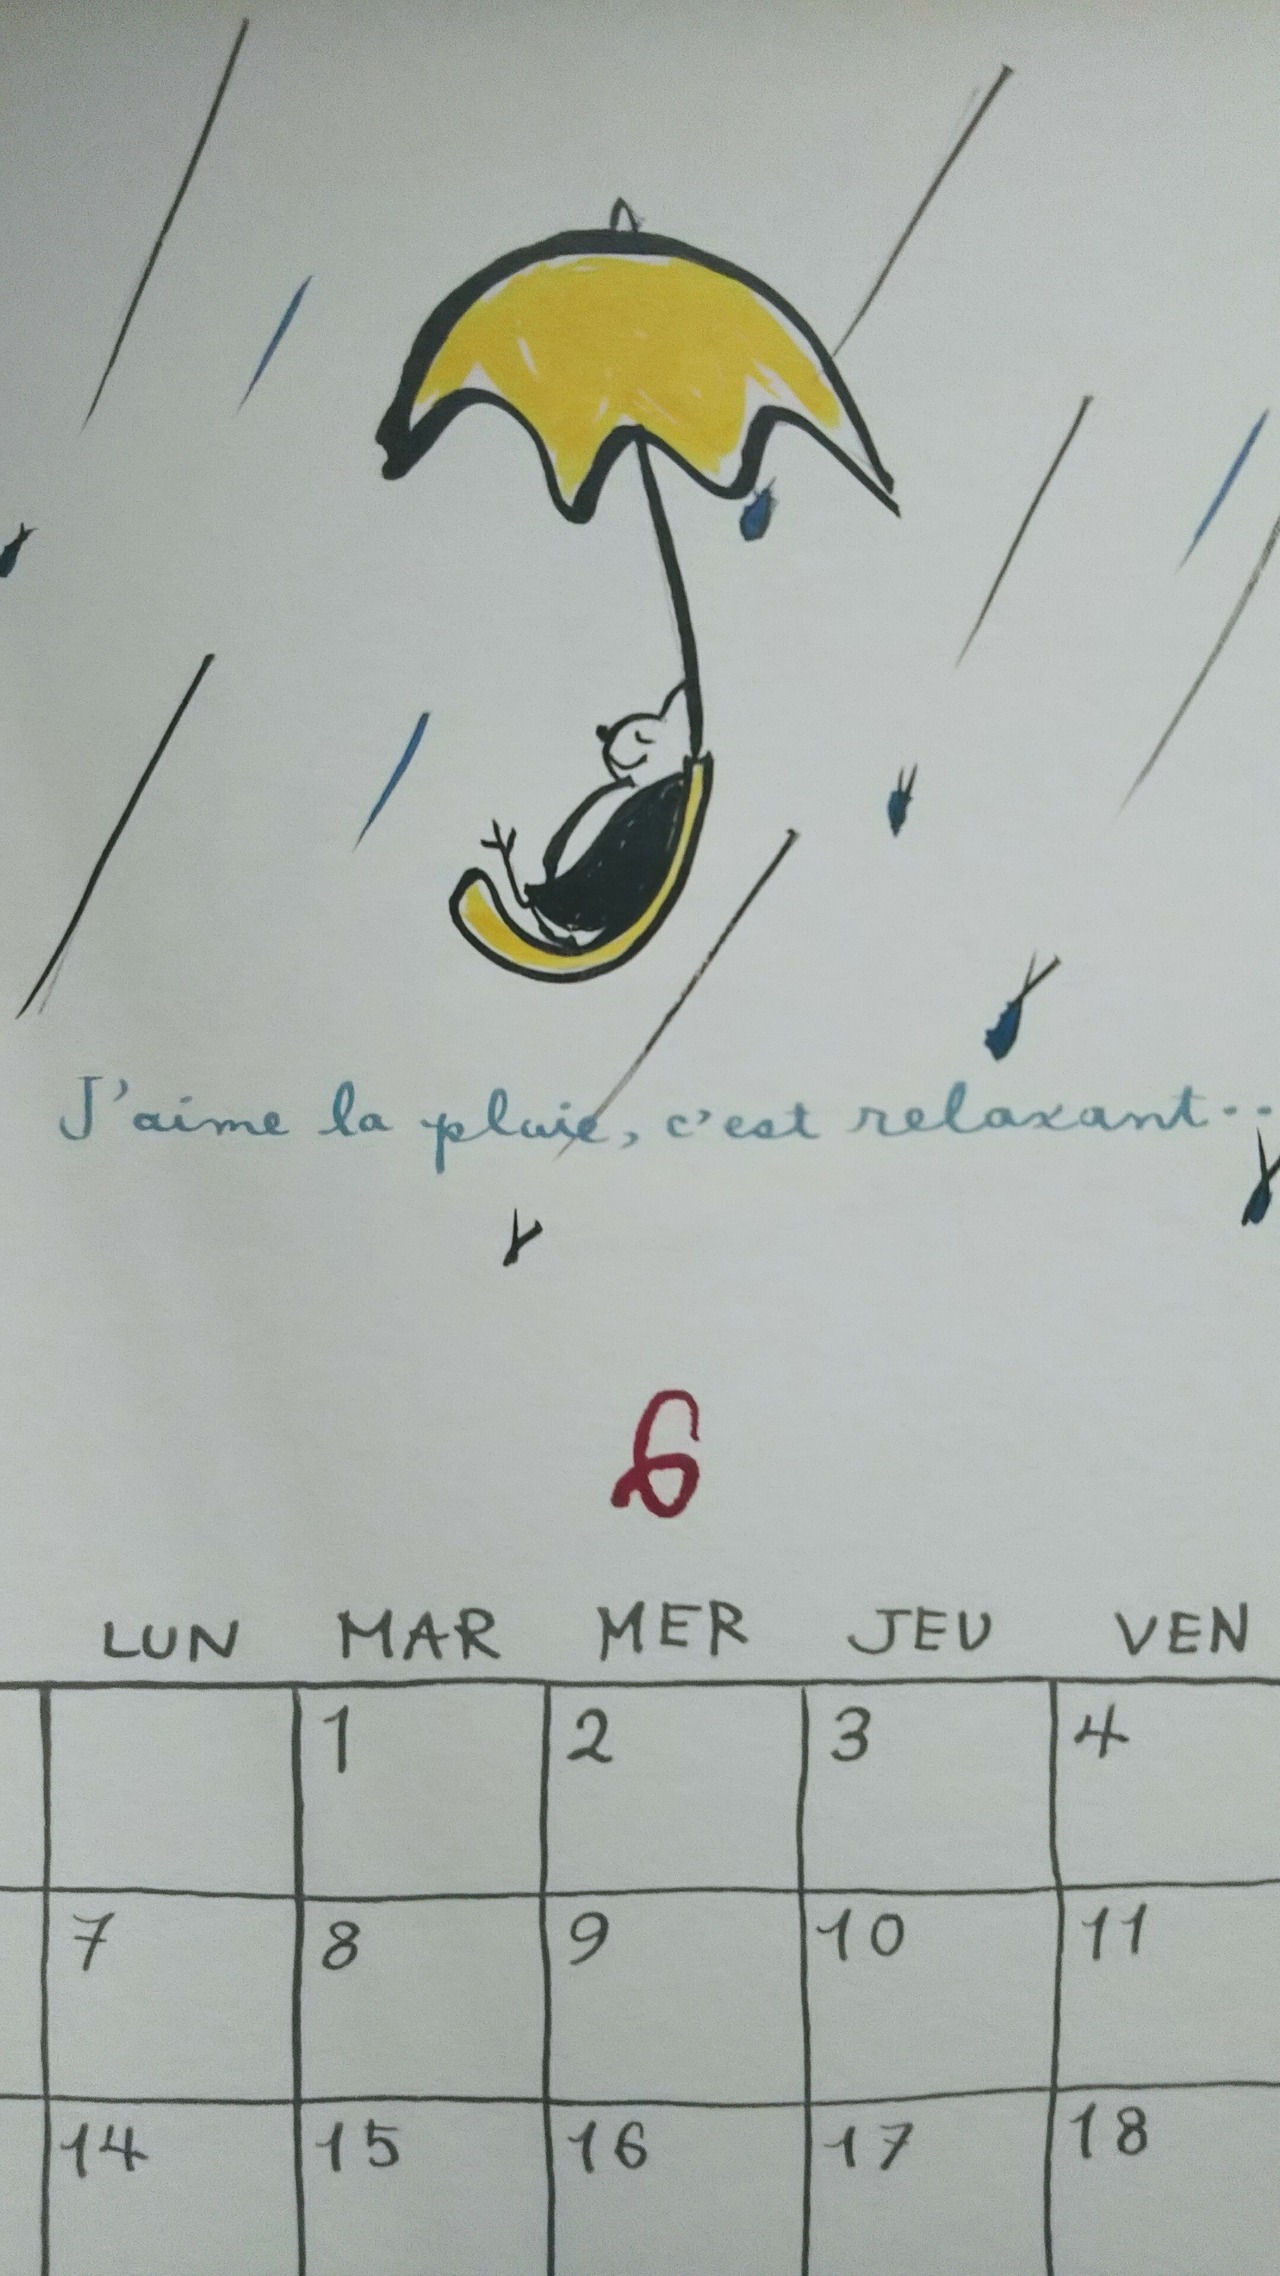 J'aime la pluie, c'est relaxant..
6
LUN MAR MER JEU VEN
1 2 3 4
7 8 9 10 11
14 15 16 17 18